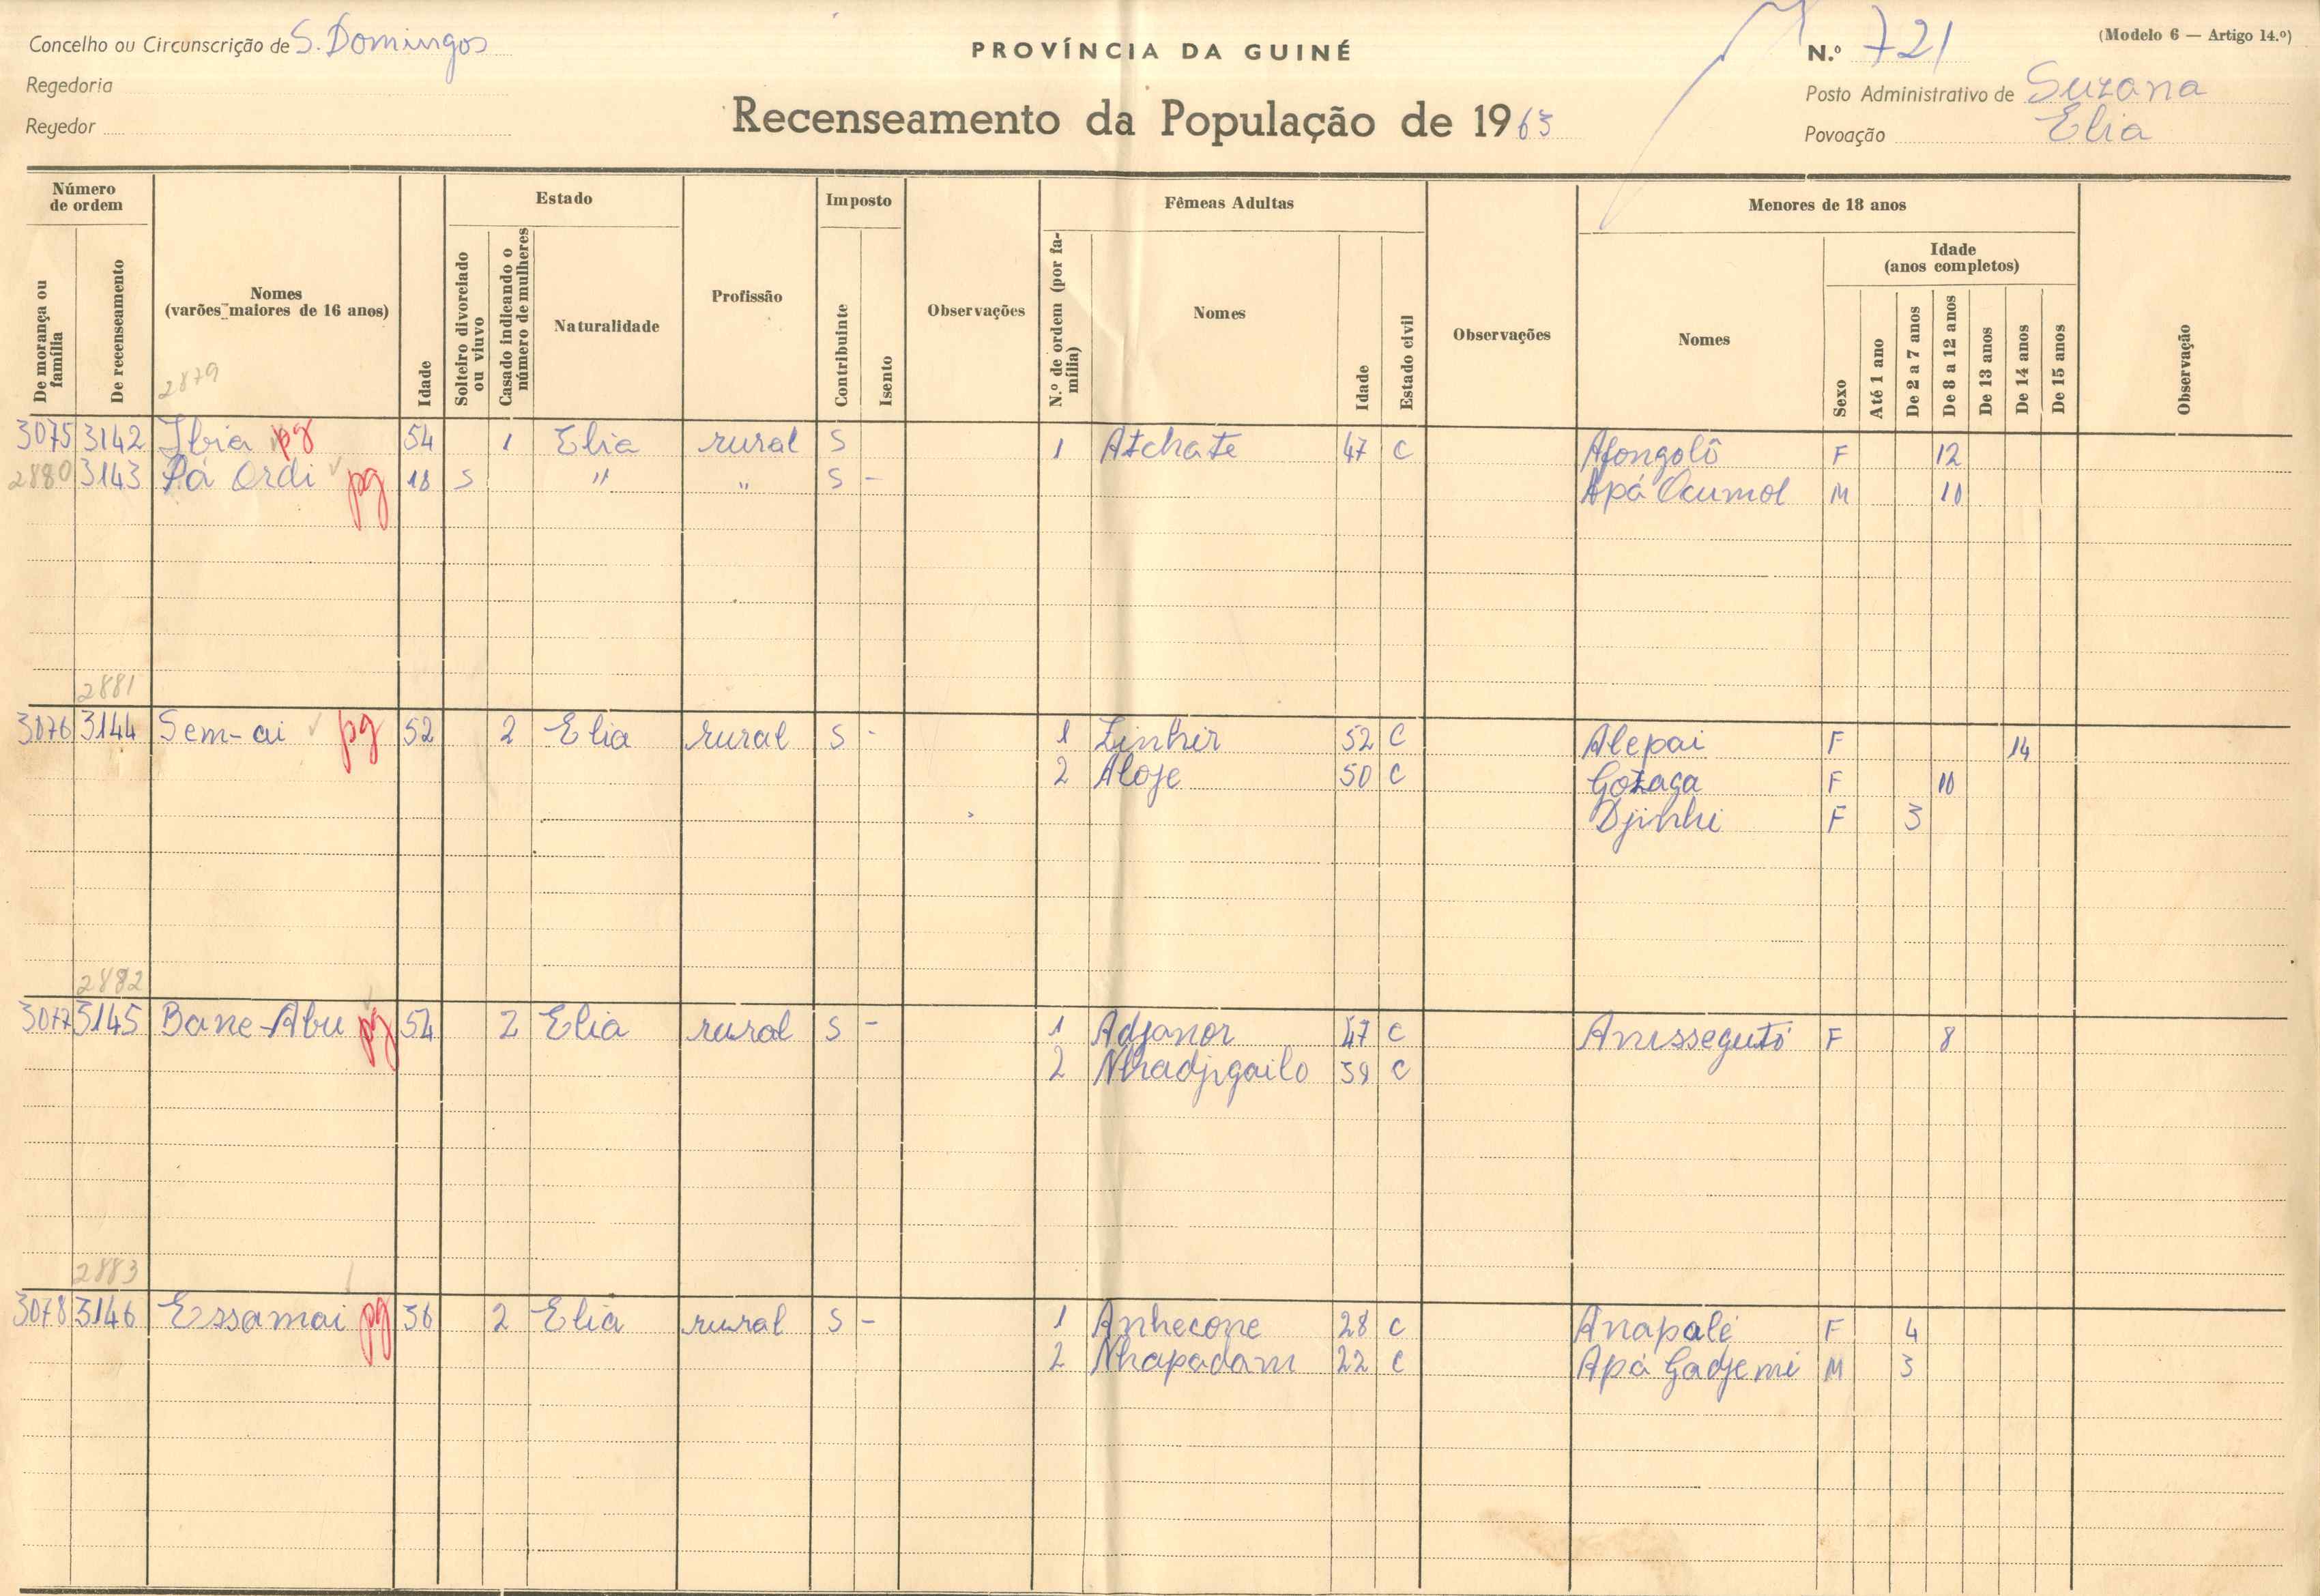 Concelho ou Circunscrição de S. Domingos
Regedoria
Regedor
PROVÍNCIA DA GUINÉ
Recenseamento da População de 1963
(Modelo 6 — Artigo 14.º)
N.º 721
Posto Administrativo de Suzana
Povoação Elia
Número de ordem
De morança ou família
De recenseamento
Nomes (varões maiores de 16 anos)
Idade
Estado
Solteiro divorciado ou viuvo
Casado indicando o número de mulheres
Naturalidade
Profissão
Imposto
Contribuinte
Isento
Observações
Fêmeas Adultas
N.º de ordem (por família)
Nomes
Idade
Estado civil
Observações
Menores de 18 anos
Nomes
Sexo
Idade (anos completos)
Até 1 ano
De 2 a 7 anos
De 8 a 12 anos
De 13 anos
De 14 anos
De 15 anos
Observação
2879
3075 3142 Ibia pg 54 1 Elia rural S 1 Atchate 47 C Afongolô F 12
2880 3143 Pá Ordi pg 18 S " " S - Apá Ocumol M 10
2881
3076 3144 Sem-ai pg 52 2 Elia rural S - 1 Linhir 52 C Alepai F 14
2 Aloje 50 C Gozaga F 10
Djinhi F 3
2882
3077 3145 Bane-Abu pg 54 2 Elia rural S - 1 Adjanor 47 C Anissegutó F 8
2 Nhadjigailo 39 C
2883
3078 3146 Essamai pg 36 2 Elia rural S - 1 Anhecone 28 C Anapalé F 4
2 Nhapadam 22 C Apá Gadjemi M 3